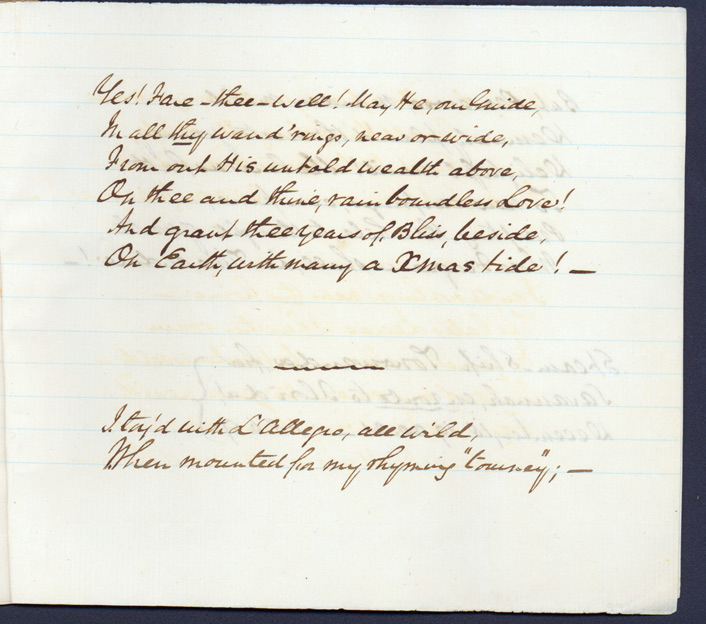 Yes! Fare-thee-well! May He, our Guide,
In all thy wand'rings, near or wide,
From out His untold wealth above,
On thee and thine, rain boundless Love!
And grant thee years of Bliss, beside,
On Earth, with many a Xmas tide! —
I toy'd with L'Allegro, all wild,
When mounted for my rhyming "tourney"; —